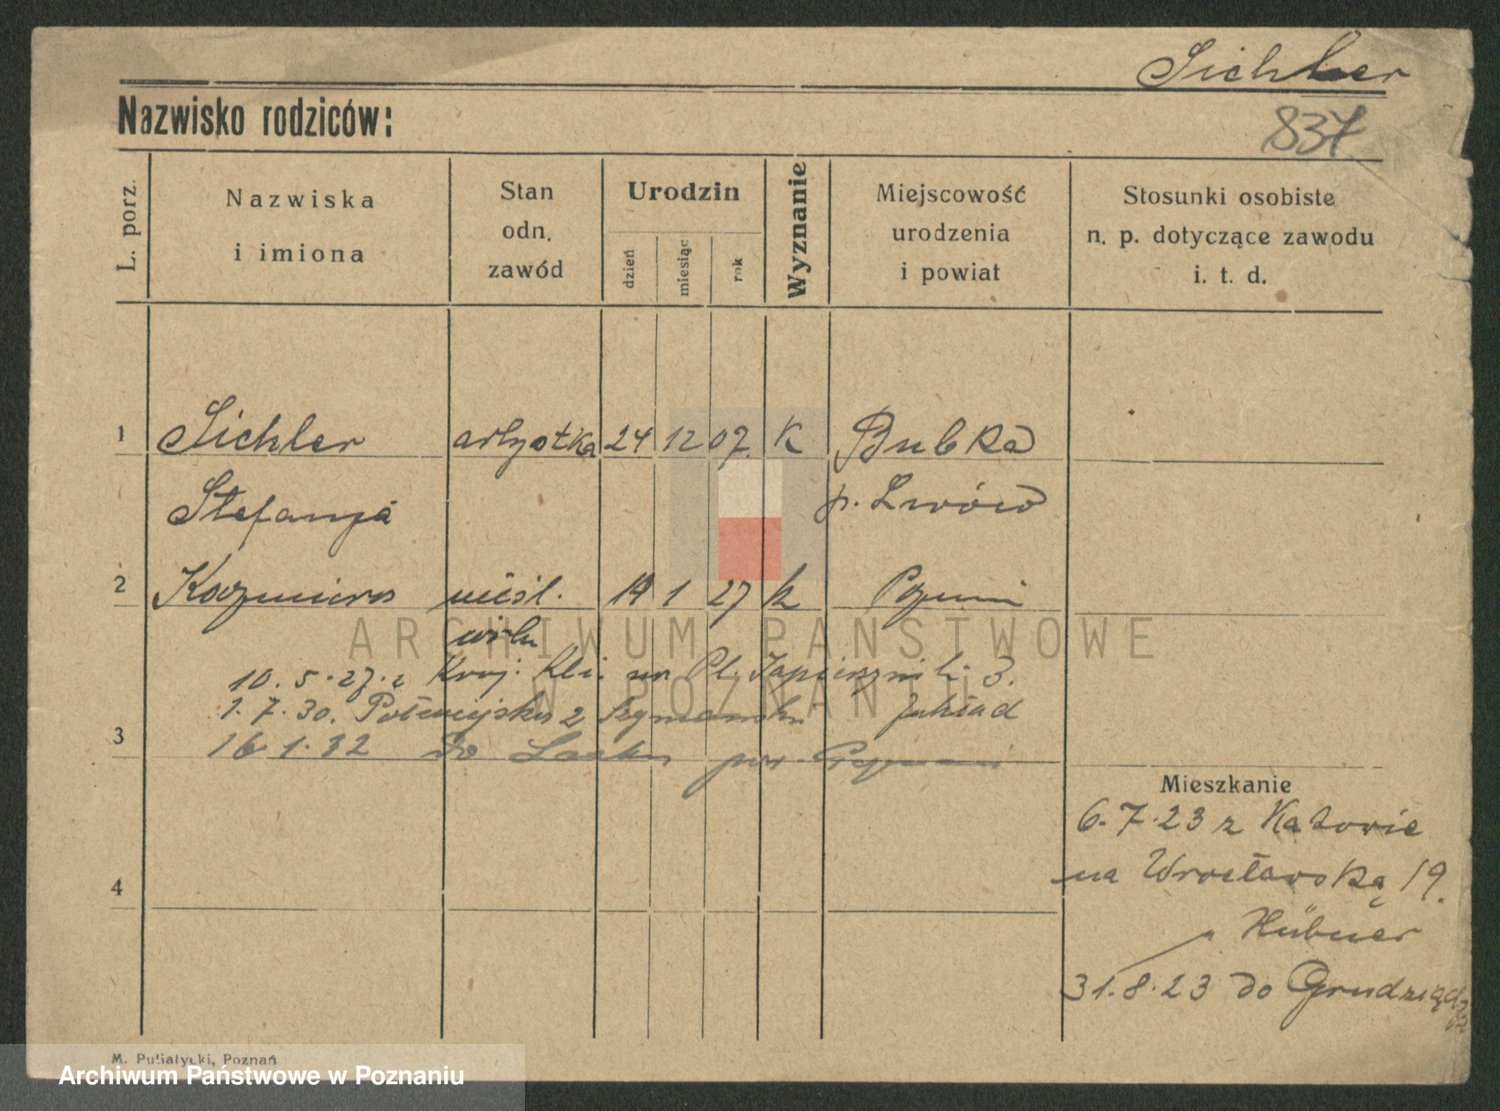 Sichler
Nazwisko rodziców:
837
L. porz.
Nazwiska
i imiona
Stan
odn.
zawód
Urodzin
dzień
miesiąc
rok
Wyznanie
Miejscowość
urodzenia
i powiat
Stosunki osobiste
n. p. dotyczące zawodu
i. t. d.
1 Sichler artystka 24 12 07 K Bubka
Stefanja p. Lwów
2 Kazimiera nieśl. 14 1 27 k Poznań
10.5.27. z Kraj. Kli. na Pl. 3.
1.7.30. Półwiejska 2 Szymański
3
16.1.32 do pow
Mieszkanie
6.7.23 z Katowic
na Wrocławską 19.
Hübner
4
31.8.23 do Grudziądz
M. Putiatycki, Poznań
ARCHIWUM PAŃSTWOWE
W POZNANIU
Archiwum Państwowe w Poznaniu